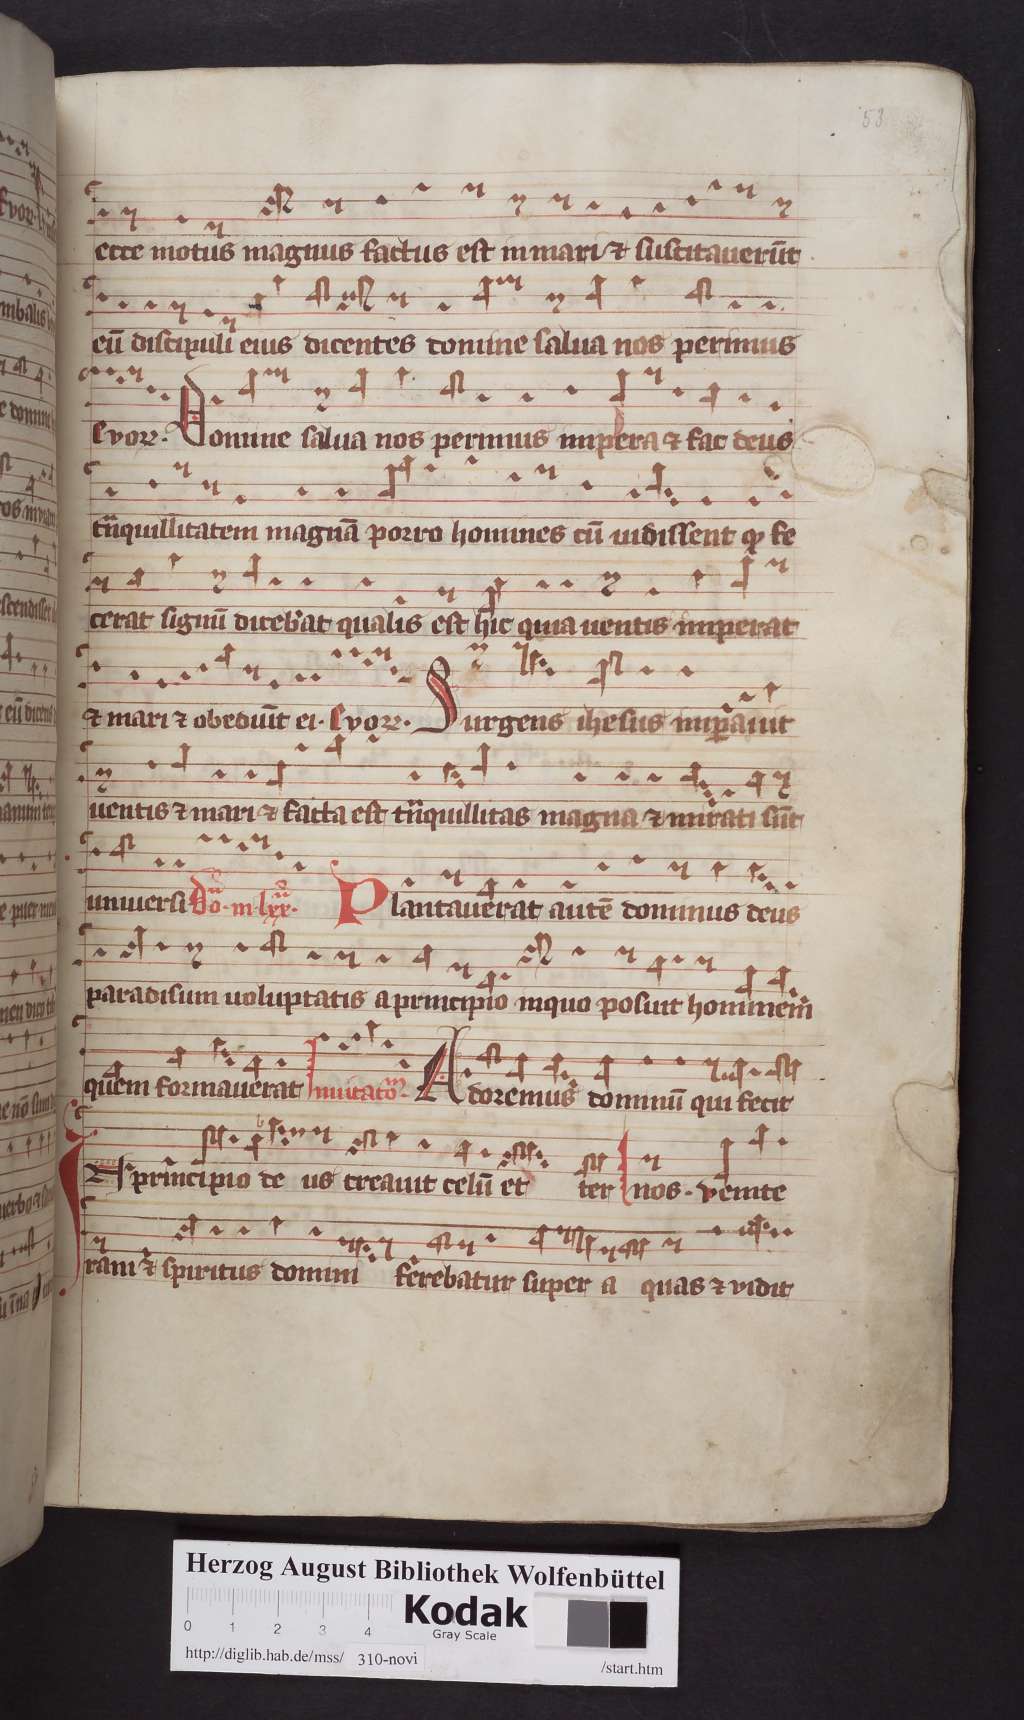 53
ecce motus magnus factus est in mari ⁊ suscitauerūt
eū discipuli eius dicentes domine salua nos perimus
Evovae. Domine salua nos perimus impera ⁊ fac deus
tñquillitatem magnā porro homines cū uidissent qꝫ fe
cerat signū dicebāt qualis est hic quia uentis imperat
⁊ mari ⁊ obediūt ei. Evovae. Surgens ihesus imperauit
uentis ⁊ mari ⁊ facta est tñquillitas magna ⁊ mirati sūt
uniuersi Plantauerat autē dominus deus
paradisum uoluptatis a principio inquo posuit hominem
quem formauerat Inuitatoᵐ. Adoremus dominū qui fecit
In principio de us creauit celū et ter nos. venite
ram ⁊ spiritus domini ferebatur super a quas ⁊ vidit
Herzog August Bibliothek Wolfenbüttel
Kodak
Gray Scale
0 1 2 3 4
http://diglib.hab.de/mss/ 310-novi /start.htm